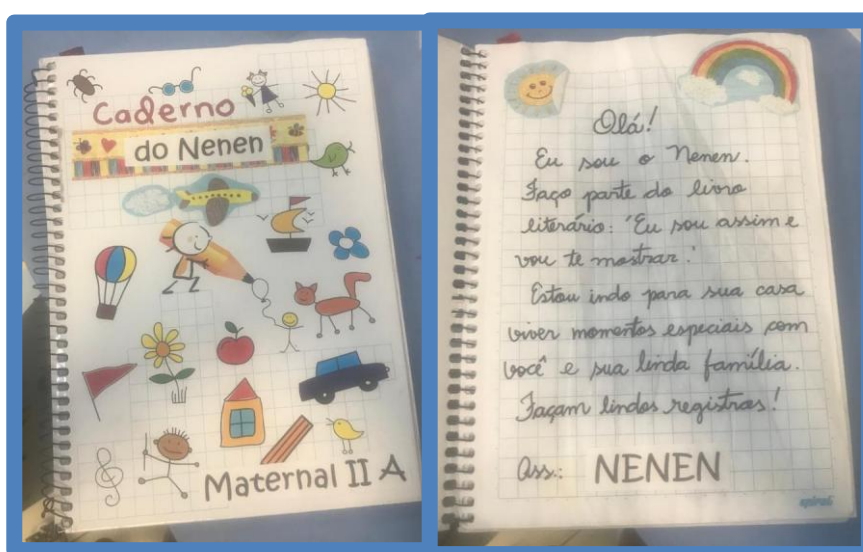 Caderno
do Nenen
Maternal II A
Olá!
Eu sou o Nenen.
Faço parte do livro
literário: "Eu sou assim e
vou te mostrar."
Estou indo para sua casa
viver momentos especiais com
você e sua linda família.
Façam lindos registros!
Ass.: NENEN
spiral